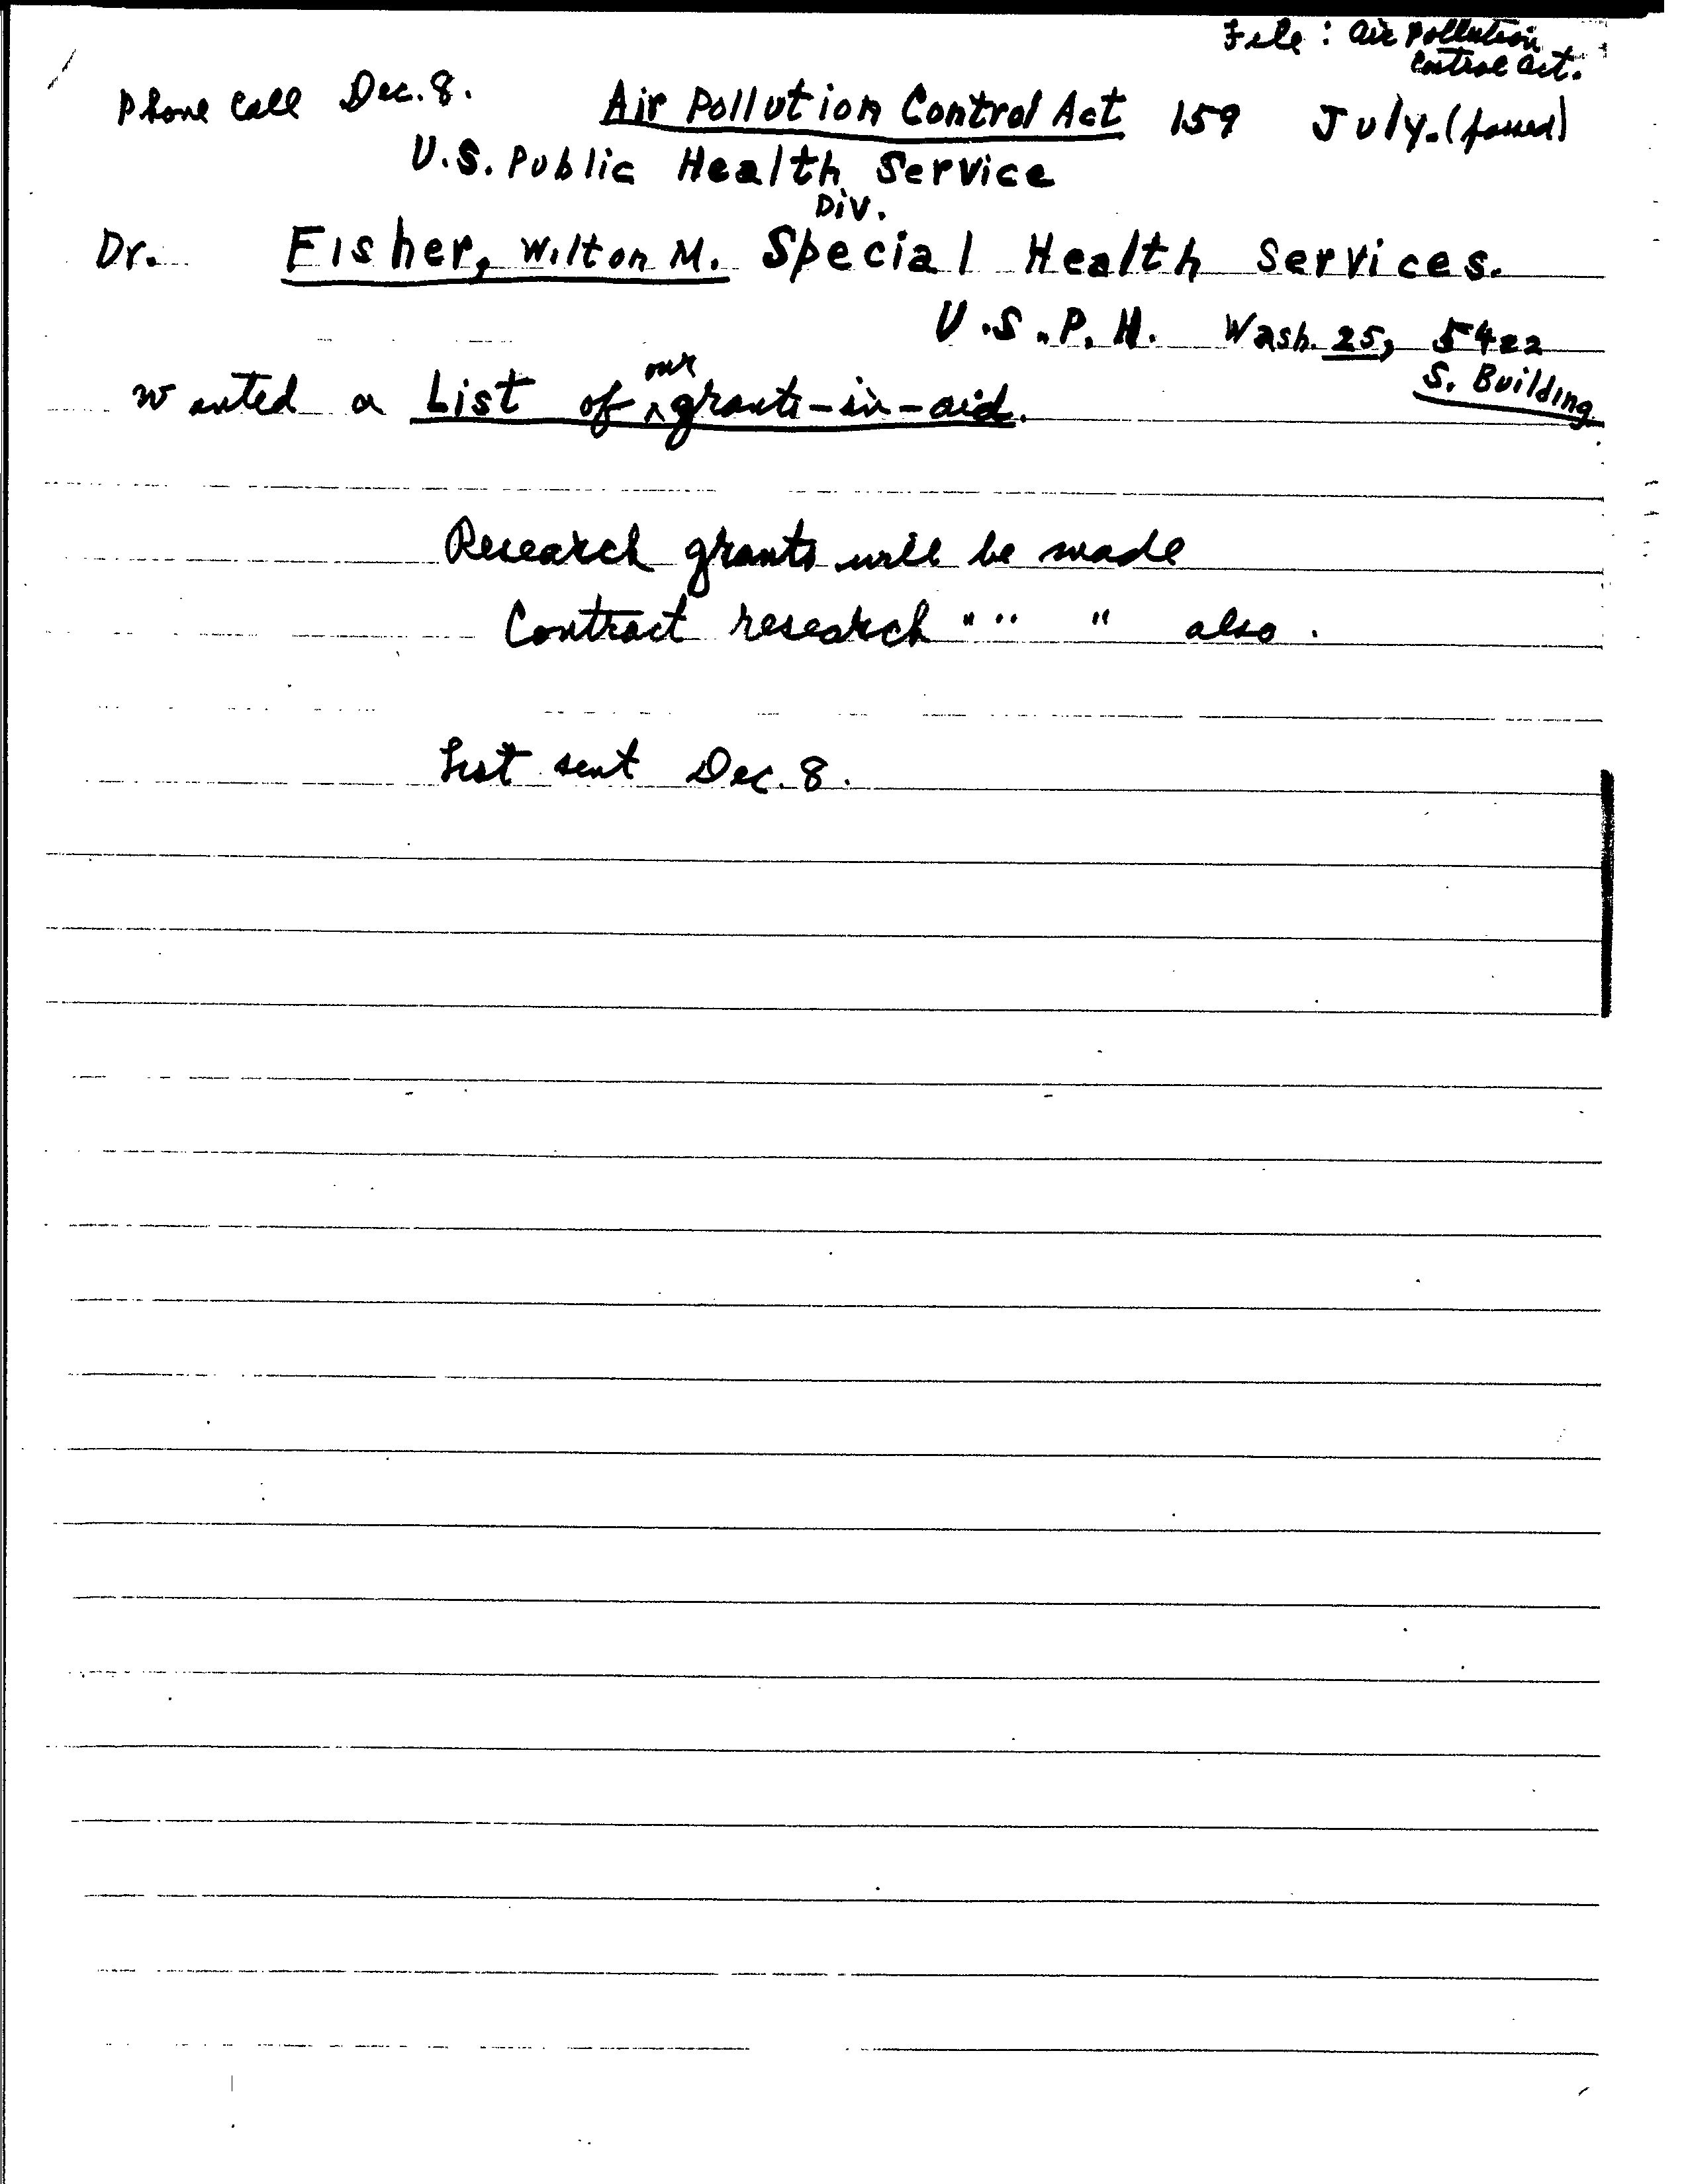 File: Air Pollution
Control Act.
Phone Call Dec. 8. Air Pollution Control Act 159 July. (passed)
U.S. Public Health Service
Div.
Dr. Fisher, Wilton M. Special Health Services.
U.S.P.H. Wash. 25, 5422
S. Building
wanted a List of our grants-in-aid.
Research grants will be made
Contract research " " " also.
List sent Dec. 8.